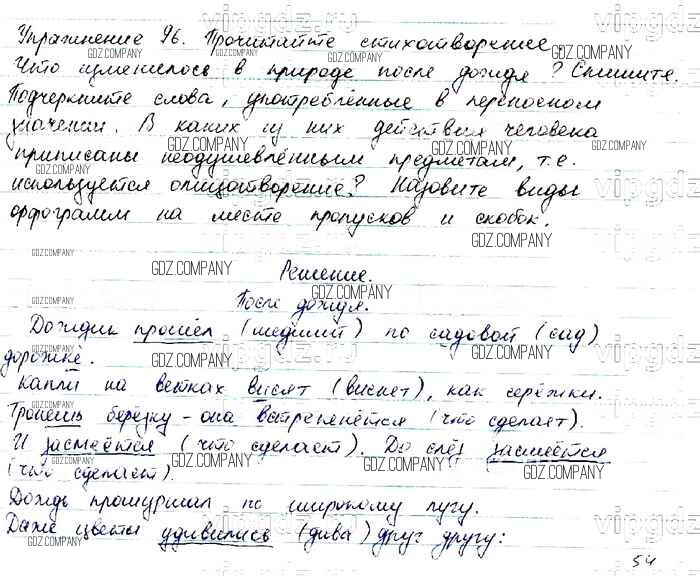 Упражнение 96. Прочитайте стихотворение.
Что изменилось в природе после дождя? Спишите.
Подчеркните слова, употреблённые в переносном
значении. В каких из них действия человека
приписаны неодушевлённым предметам, т.е.
используется олицетворение? Назовите виды
орфограмм на месте пропусков и скобок.
Решение.
После дождя.
Дождик прошёл (шедший) по садовой (сад)
дорожке.
Капли на ветках висят (виснет), как серёжки.
Тронешь берёзку - она встрепенётся (что сделает).
И засмеётся (что сделает). До слёз засмеётся
(что сделает).
Дождь прошуршал по широкому лугу.
Даже цветы удивились (дива) друг другу:
54
GDZ.COMPANY
vipgdz.ru